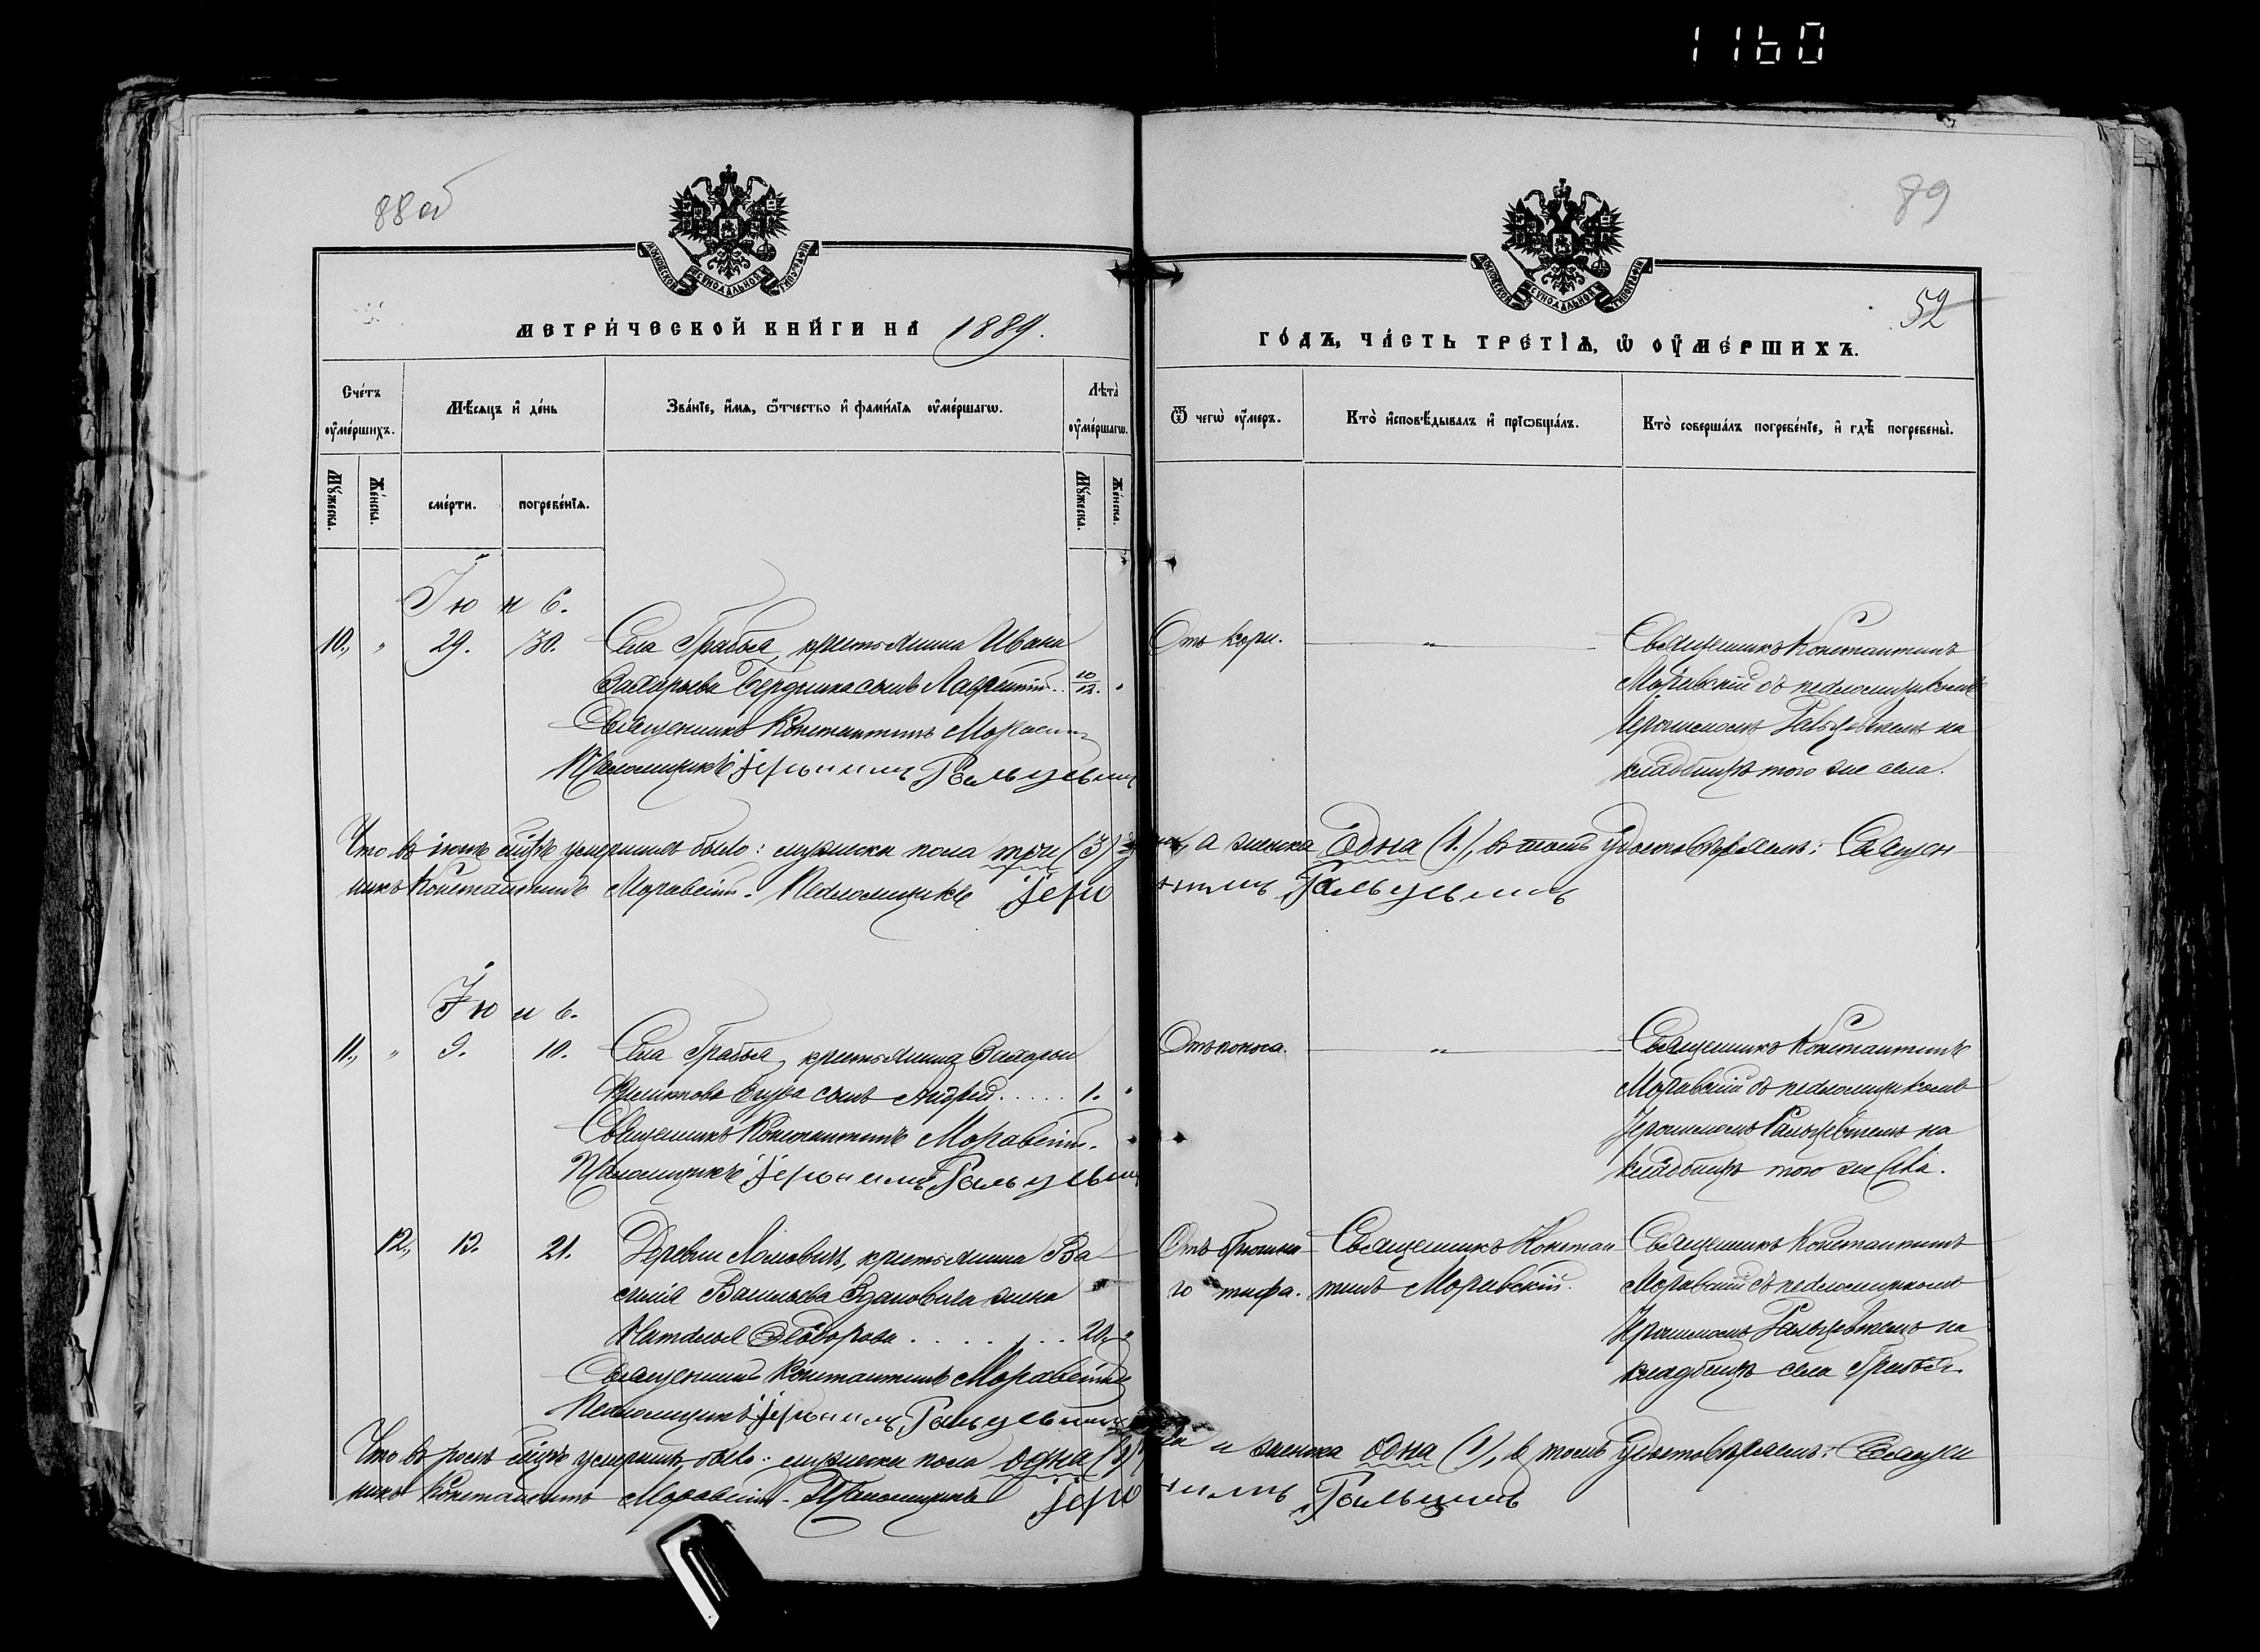 1160
88об
89
МОСКОВСКОЙ СУНОДАЛЬНОЙ ТИПОГРАФІИ
МОСКОВСКОЙ СУНОДАЛЬНОЙ ТИПОГРАФІИ
52
МЕТРИ́ЧЕСКОЙ КНИ́ГИ НА 1889.
ГО́ДЪ, ЧА́СТЬ ТРЕ́ТІѦ, Ѡ҆ ОУ҆МЕ́РШИХЪ.
Сче́тъ оу҆ме́ршихъ.
Мѣ́сѧцъ и҆ де́нь
Зва́нїе, и҆́мѧ, ѻ҆́тчество и҆ фами́лїѧ оу҆ме́ршагѡ.
Лѣ́та оу҆ме́ршагѡ.
Ѿ чегѡ̀ оу҆́меръ.
Кто̀ и҆сповѣ́дывалъ и҆ прїѡбща́лъ.
Кто̀ соверша́лъ погребе́нїе, и҆ гдѣ̀ погребены̀.
Мꙋ́жеска.
Же́нска.
сме́рти.
погребе́нїѧ.
Мꙋ́жеска.
Же́нска.
Іюнь.
10., " 29. 30. Села Грабья, крестьянина Ивана
Захарьева сынъ Лаврентій. 10/12. "
Священникъ Константинъ Моравскій
Псаломщикъ Іеронимъ Гальцевичъ
Отъ кори. "
Священникъ Константинъ
Моравскій съ псаломщикомъ
Іеронимомъ Гальцевичемъ на
кладбищѣ того же села.
Что въ іюнѣ м-цѣ умершихъ было: мужеска пола три (3), а женска одна (1), въ томъ удостовѣряемъ: Священ
никъ Константинъ Моравскій. Псаломщикъ Іеронимъ Гальцевичъ
Іюль.
11., " 9. 10. Села Грабья, крестьянина
сынъ Андрей..... 1. "
Священникъ Константинъ Моравскій.
Псаломщикъ Іеронимъ Гальцевичъ
Отъ поноса. "
Священникъ Константинъ
Моравскій съ псаломщикомъ
Іеронимомъ Гальцевичемъ на
кладбищѣ того же села.
12., 21. Деревни крестьянина Ва
силія Васильева жена
Наталья Ѳеодорова...... 20. "
Священникъ Константинъ Моравскій
Псаломщикъ Іеронимъ Гальцевичъ
Отъ брюшна
го тифа.
Священникъ Констан
тинъ Моравскій.
Священникъ Константинъ
Моравскій съ псаломщикомъ
Іеронимомъ Гальцевичемъ на
кладбищѣ села
Что въ іюлѣ м-цѣ умершихъ было: мужеска пола одна (1) и женска одна (1), въ томъ удостовѣряемъ: Священ
никъ Константинъ Моравскій. Псаломщикъ Іеронимъ Гальцевичъ